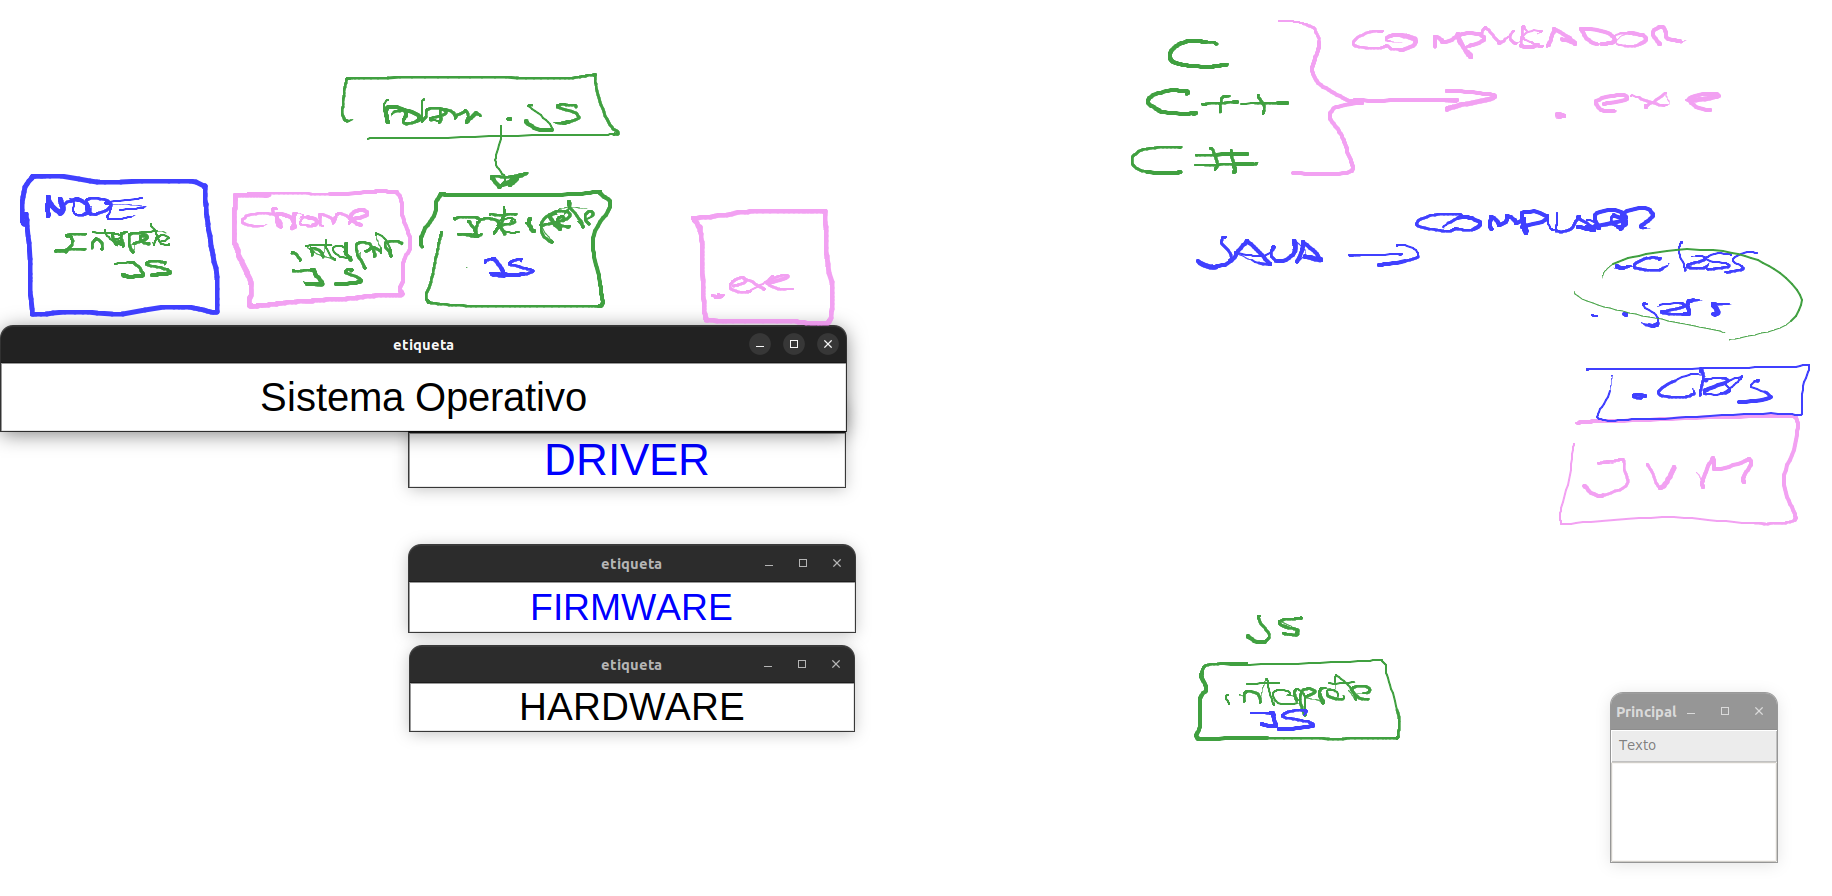 .js
NODE
Interprete
JS
Chrome
interprete
JS
Interprete
JS
.exe
etiqueta
Sistema Operativo
DRIVER
etiqueta
FIRMWARE
etiqueta
HARDWARE
C
C++
C#
COMPILADOR
.exe
JAVA → COMPILADOR
.class
.jars
.class
JVM
JS
interprete
JS
Principal
Texto